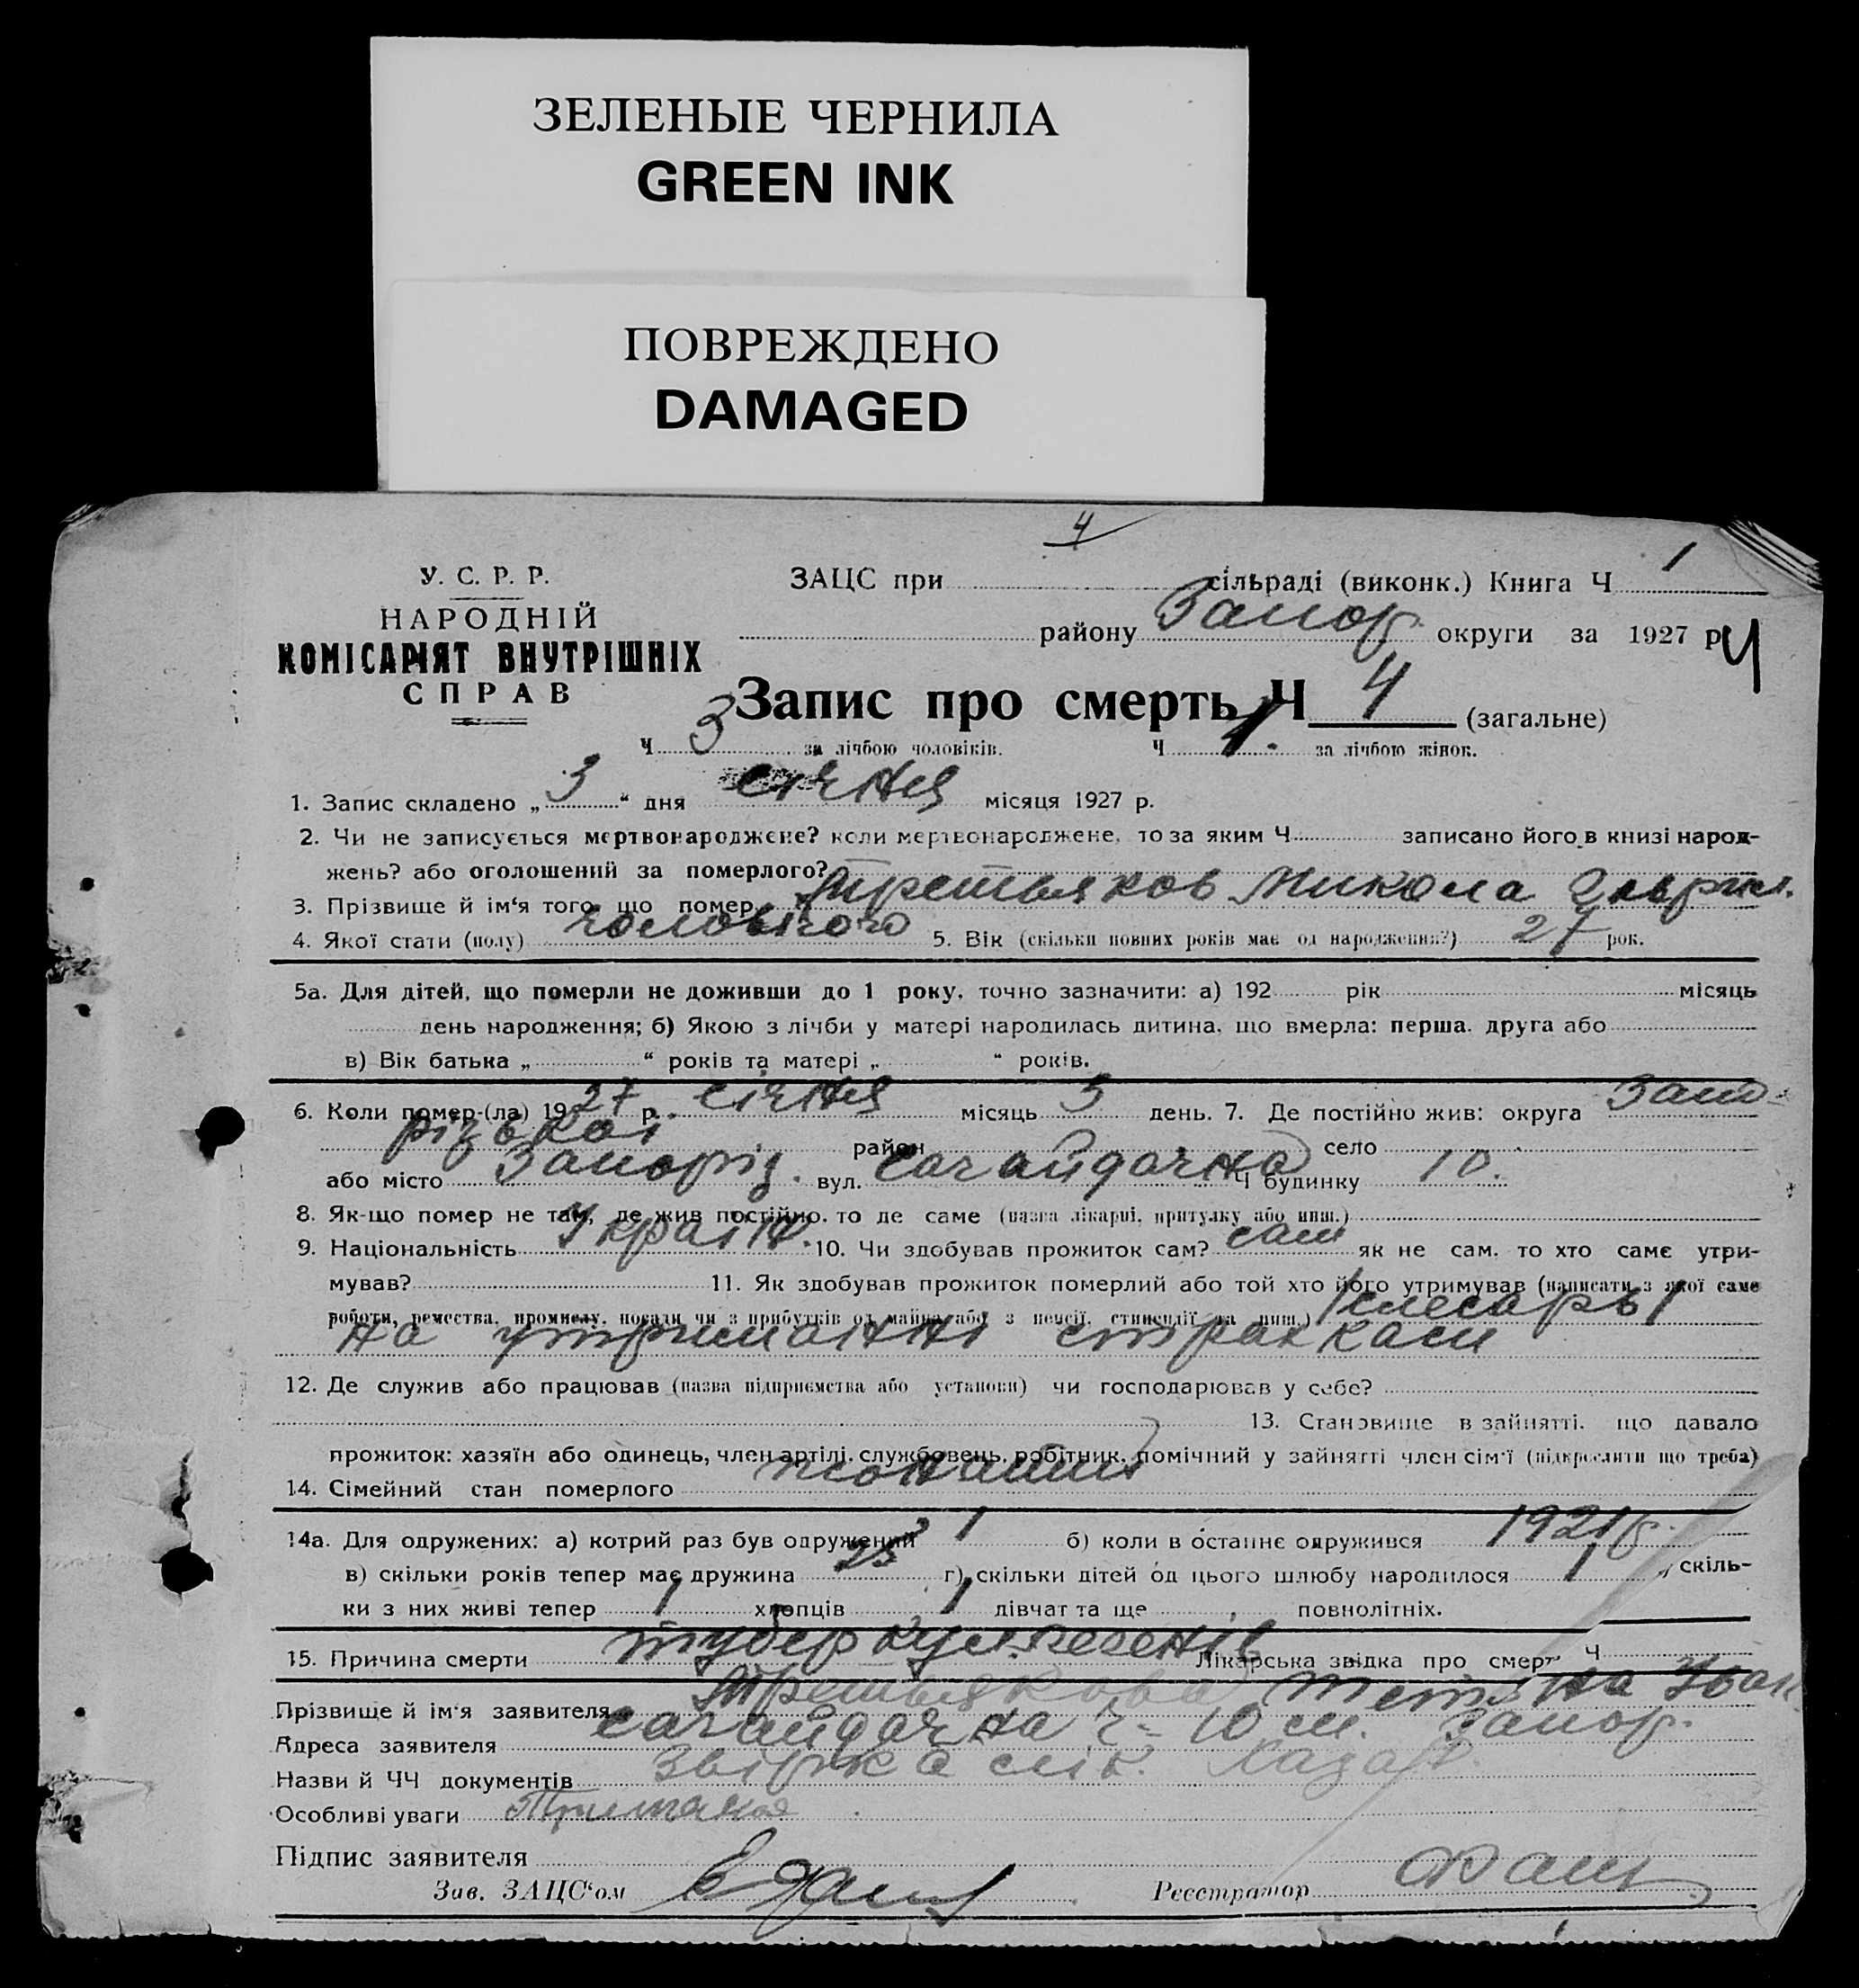 ЗЕЛЕНЫЕ ЧЕРНИЛА
GREEN INK
ПОВРЕЖДЕНО
DAMAGED
4
У. С. Р. Р.
НАРОДНІЙ
КОМІСАРІЯТ ВНУТРІШНІХ
СПРАВ
ЗАЦС при сільраді (виконк.) Книга Ч 1
району Запор. округи за 1927 р. 4
Запис про смерть Ч 4 (загальне)
Ч 3 за лічбою чоловіків. Ч 1. за лічбою жінок.
1. Запис складено „ 3 “ дня січня місяця 1927 р.
2. Чи не записується мертвонароджене? коли мертвонароджене, то за яким Ч записано його в книзі народ-
жень? або оголошений за померлого?
3. Прізвище й ім‘я того, що помер Третьяков Микола Гаврил.
4. Якої стати (полу) чоловічого 5. Вік (скільки повних років має од народження?) 27 рок.
5а. Для дітей, що померли не доживши до 1 року, точно зазначити: а) 192 рік місяць
день народження; б) Якою з лічби у матері народилась дитина, що вмерла: перша, друга або
в) Вік батька „ “ років та матері „ “ років.
6. Коли помер-(ла) 1927 р. січня місяць 3 день. 7. Де постійно жив: округа Запо-
різької район село
або місто Запоріз. вул. Сагайдачна Ч будинку 10.
8. Як-що помер не там, де жив постійно, то де саме (назва лікарні, притулку або инш.)
9. Національність Україн. 10. Чи здобував прожиток сам? сам як не сам, то хто саме утри-
мував? 11. Як здобував прожиток померлий або той хто його утримував (написати з якої саме
роботи, ремества, промислу, посади чи з прибутків од майна або з пенсії, стипендії та инш.) /слесарь/
на утриманні страхкаси
12. Де служив або працював (назва підприємства або установи) чи господарював у себе?
13. Становище в зайнятті, що давало
прожиток: хазяїн або одинець, член артілі, службовець, робітник, помічний у зайнятті член сім‘ї (підкреслити що треба)
14. Сімейний стан померлого
14а. Для одружених: а) котрий раз був одружений 1 б) коли в останнє одружився 1921 р.
в) скільки років тепер має дружина 25 г) скільки дітей од цього шлюбу народилося 1, скіль-
ки з них живі тепер 1 хлопців 1 дівчат та ще повнолітніх.
15. Причина смерти туберкул. легенів Лікарська звідка про смерть Ч
Прізвище й ім‘я заявителя Третьякова Тетяна Іван.
Адреса заявителя Сагайдачна ч- 10 м. Запор.
Назви й ЧЧ документів
Особливі уваги
Підпис заявителя
Зав. ЗАЦС‘ом Реєстратор